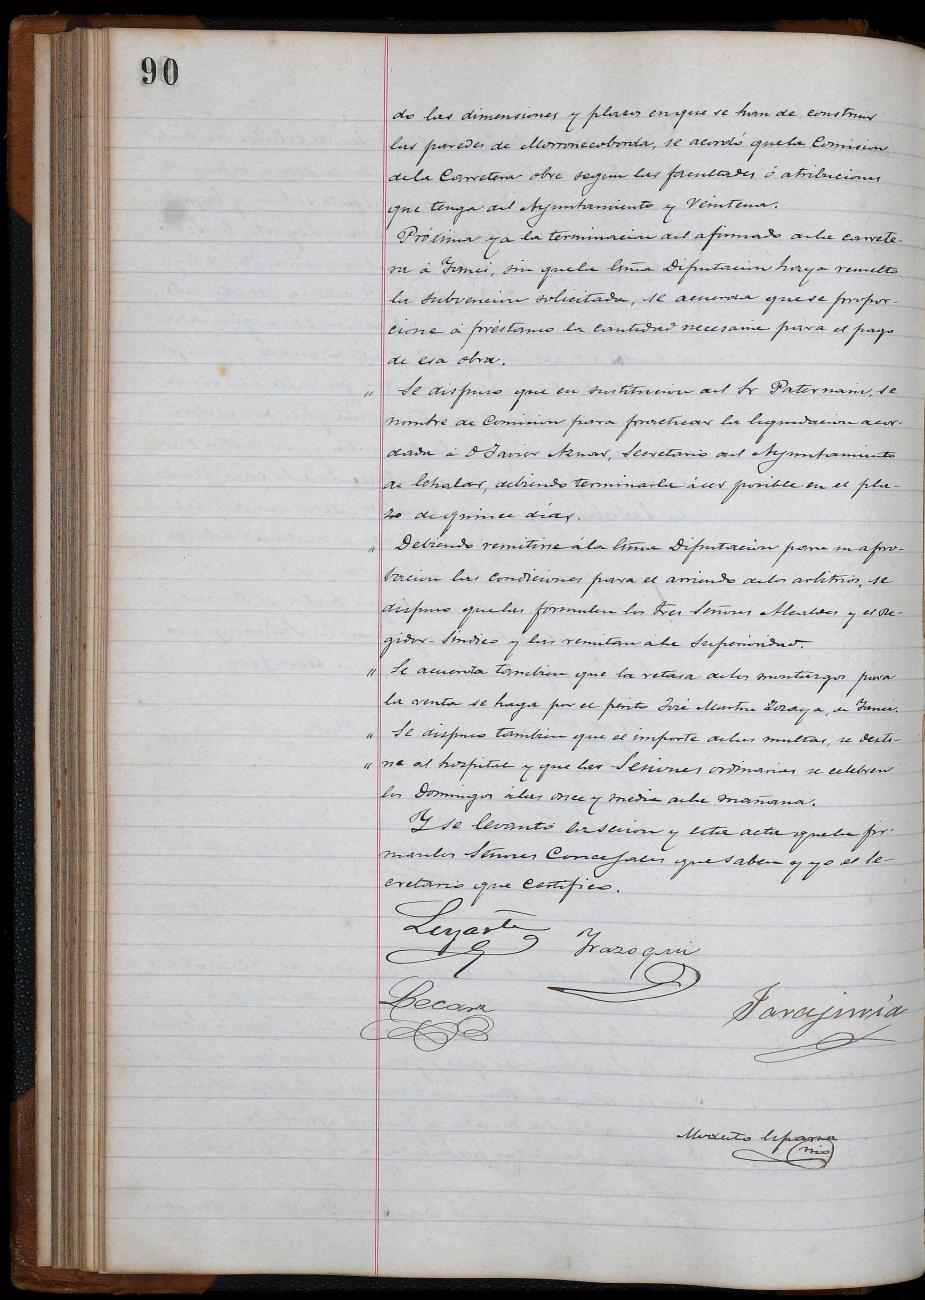 90
do las dimensiones y plazo en que se han de construir
las paredes de Morronecoborda, se acordó que la Comision
de la Carretera obre segun las facultades ó atribuciones
que tenga del Ayuntamiento y Veintena.
Próxima ya la terminacion del afirmado de la carrete-
ra á Yanci, sin que la Exma Diputacion haya resuelto
la subvencion solicitada, se acuerda que se propor-
cione á préstamo la cantidad necesaria para el pago
de esa obra.
" Se dispuso que en sustitucion del Sr Paternain, se
nombre de Comision para practicar la liquidacion acor-
dada á D Javier Aznar, Secretario del Ayuntamiento
de Echalar, debiendo terminarla á ser posible en el pla-
zo de quince dias.
" Debiendo remitirse á la Exma Diputacion para su apro-
bacion las condiciones para el arriendo de los arbitrios, se
dispuso que las formulen los tres Señores Alcaldes y el Re-
gidor-Síndico y las remitan á la Superioridad.
" Se acuerda tambien que la retasa de los montazgos para
la venta se haga por el perito José Martin Zozaya, de Yanci.
" Se dispuso tambien que el importe de las multas, se desti-
" ne al hospital y que las Sesiones ordinarias se celebren
los Domingos á las once y media de la mañana.
Y se levantó la sesion y esta acta que la fir-
man los Señores Concejales que saben y yo el Se-
cretario que certifico.
Leyarte
Yrazoqui
Pecare
Tarajinria
Modesto Esparza